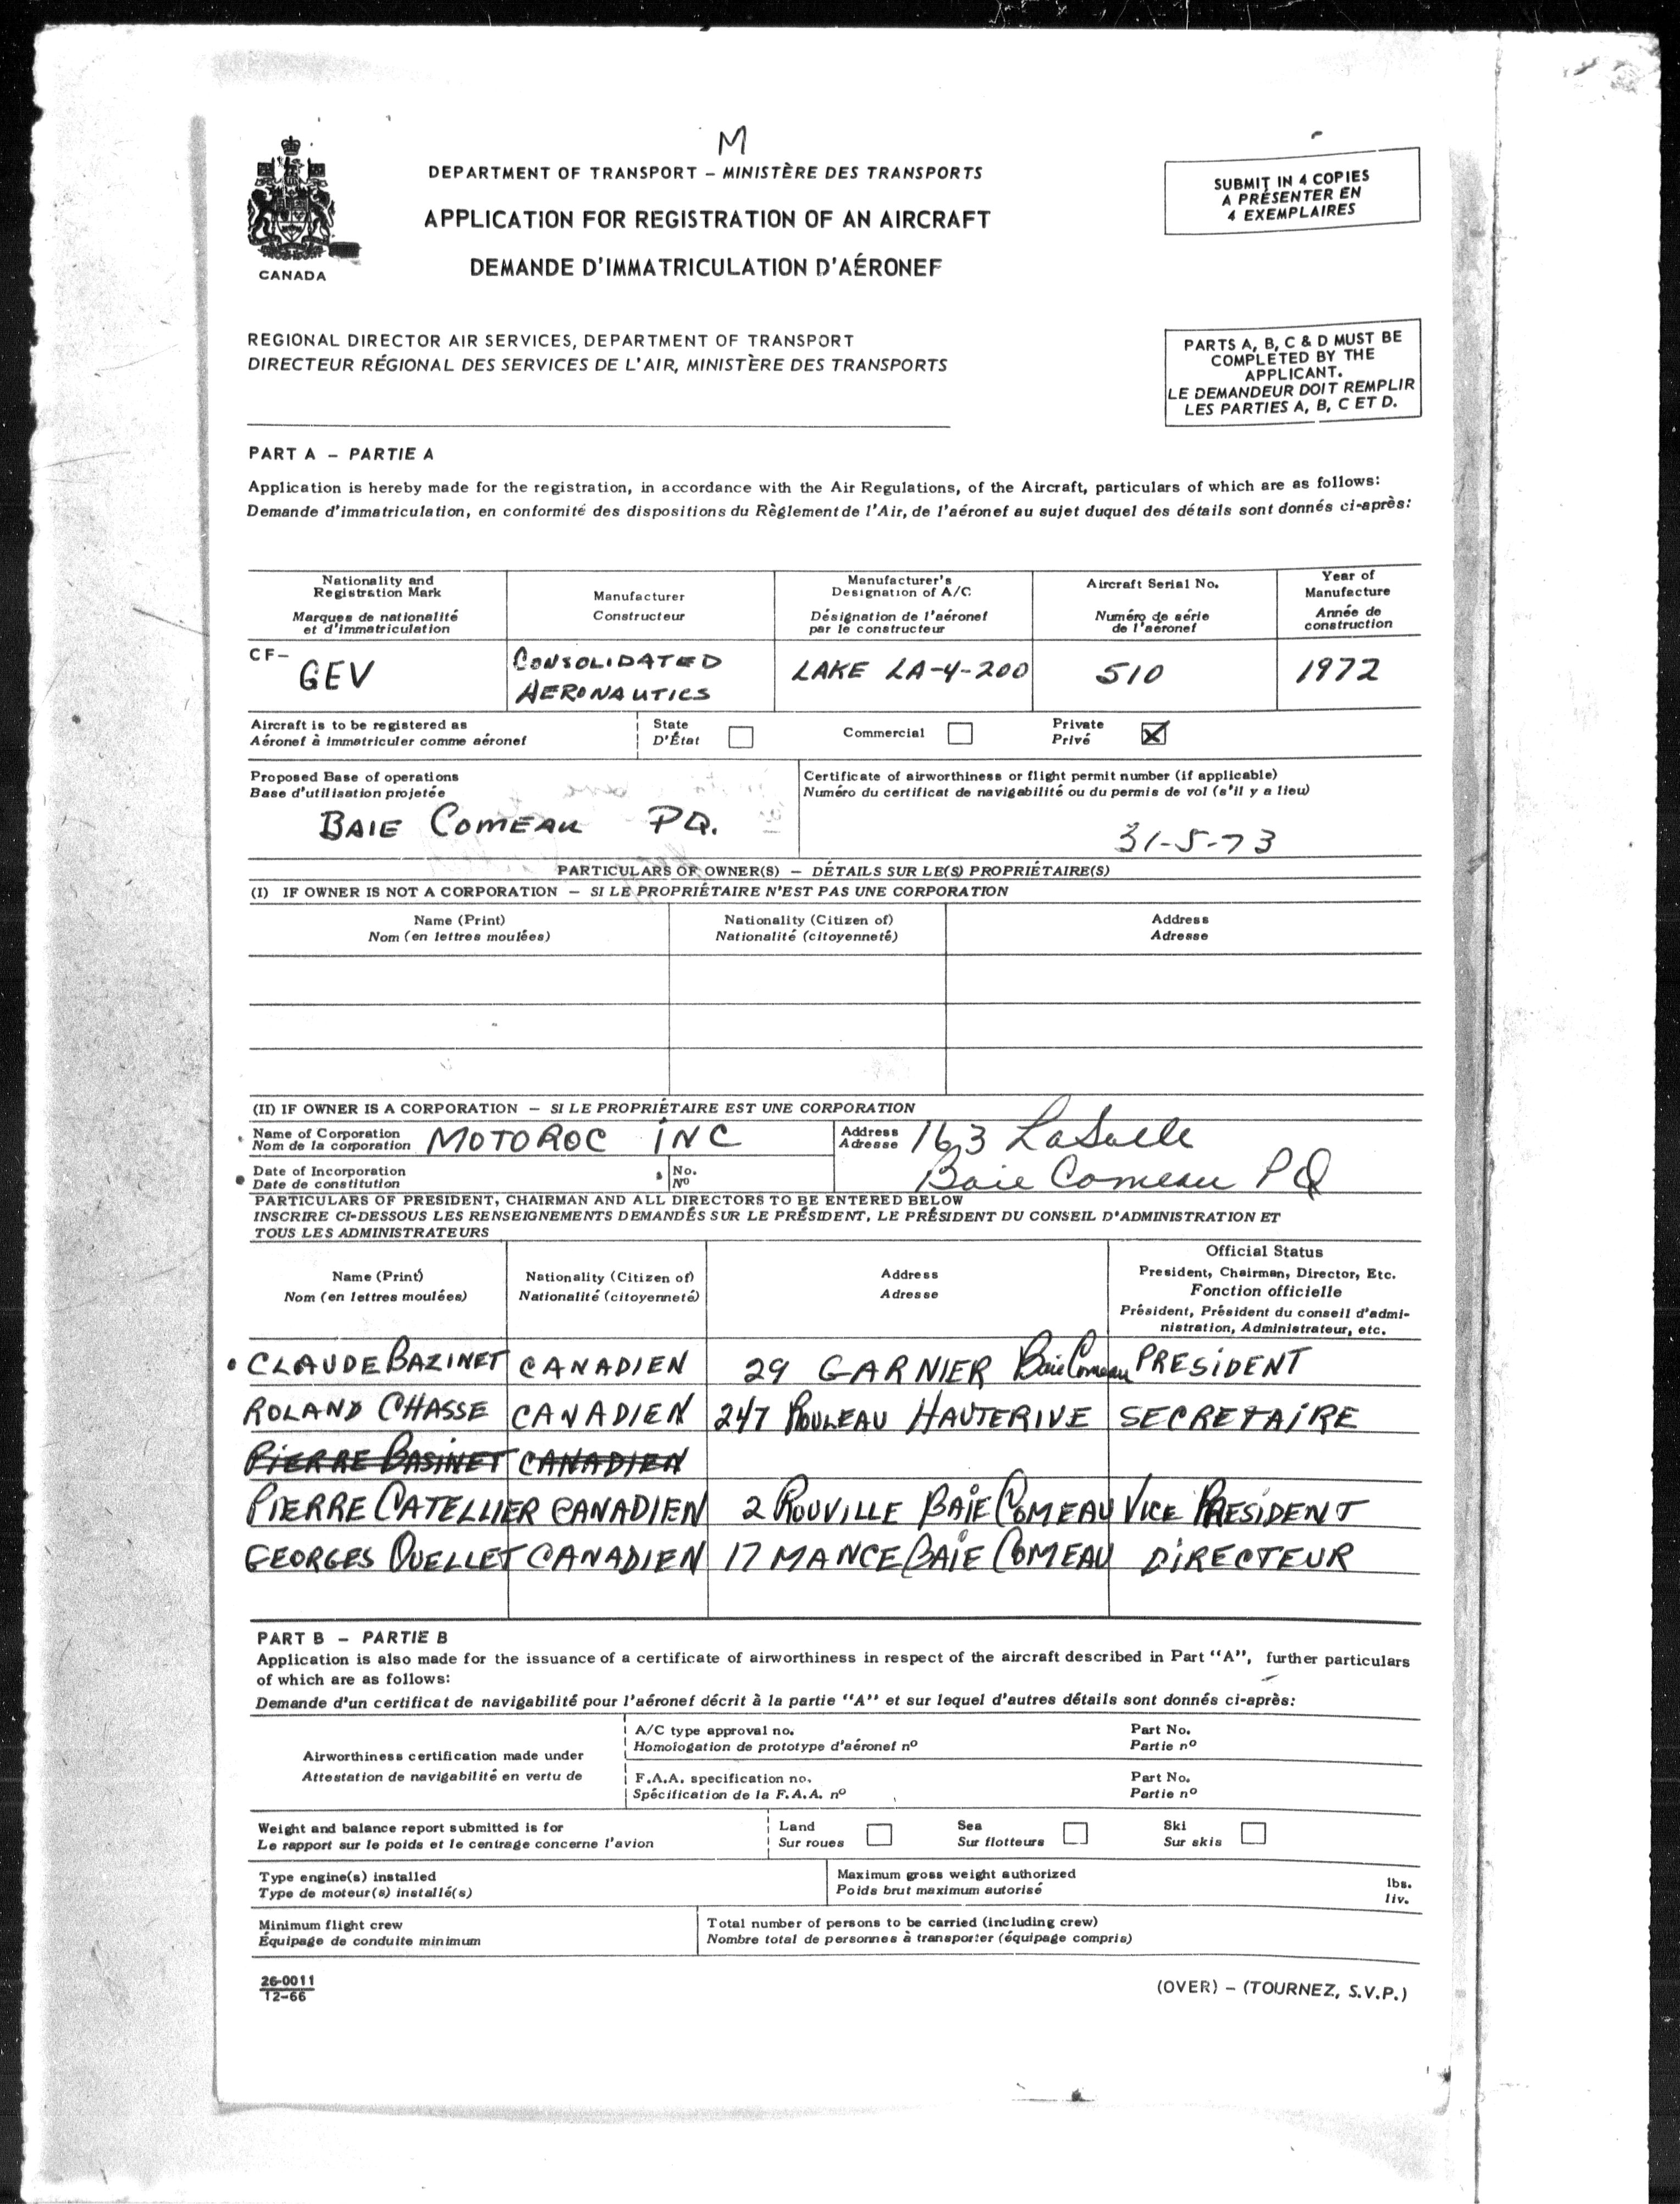 M
DEPARTMENT OF TRANSPORT – MINISTÈRE DES TRANSPORTS
APPLICATION FOR REGISTRATION OF AN AIRCRAFT
DEMANDE D'IMMATRICULATION D'AÉRONEF
CANADA
SUBMIT IN 4 COPIES
A PRÉSENTER EN
4 EXEMPLAIRES
REGIONAL DIRECTOR AIR SERVICES, DEPARTMENT OF TRANSPORT
DIRECTEUR RÉGIONAL DES SERVICES DE L'AIR, MINISTÈRE DES TRANSPORTS
PARTS A, B, C & D MUST BE
COMPLETED BY THE
APPLICANT.
LE DEMANDEUR DOIT REMPLIR
LES PARTIES A, B, C ET D.
PART A – PARTIE A
Application is hereby made for the registration, in accordance with the Air Regulations, of the Aircraft, particulars of which are as follows:
Demande d'immatriculation, en conformité des dispositions du Règlement de l'Air, de l'aéronef au sujet duquel des détails sont donnés ci-après:
Nationality and
Registration Mark
Marques de nationalité
et d'immatriculation
Manufacturer
Constructeur
Manufacturer's
Designation of A/C
Désignation de l'aéronef
par le constructeur
Aircraft Serial No.
Numéro de série
de l'aéronef
Year of
Manufacture
Année de
construction
CF– GEV
CONSOLIDATED
AERONAUTICS
LAKE LA-4-200
510
1972
Aircraft is to be registered as
Aéronef à immatriculer comme aéronef
State
D'État
Commercial
Private
Privé
Proposed Base of operations
Base d'utilisation projetée
BAIE COMEAU PQ.
Certificate of airworthiness or flight permit number (if applicable)
Numéro du certificat de navigabilité ou du permis de vol (s'il y a lieu)
31-5-73
PARTICULARS OF OWNER(S) – DÉTAILS SUR LE(S) PROPRIÉTAIRE(S)
(I) IF OWNER IS NOT A CORPORATION – SI LE PROPRIÉTAIRE N'EST PAS UNE CORPORATION
Name (Print)
Nom (en lettres moulées)
Nationality (Citizen of)
Nationalité (citoyenneté)
Address
Adresse
(II) IF OWNER IS A CORPORATION – SI LE PROPRIÉTAIRE EST UNE CORPORATION
Name of Corporation
Nom de la corporation
MOTOROC INC
Address
Adresse
163 LaSalle
Baie Comeau PQ
Date of Incorporation
Date de constitution
No.
Nº
PARTICULARS OF PRESIDENT, CHAIRMAN AND ALL DIRECTORS TO BE ENTERED BELOW
INSCRIRE CI-DESSOUS LES RENSEIGNEMENTS DEMANDÉS SUR LE PRÉSIDENT, LE PRÉSIDENT DU CONSEIL D'ADMINISTRATION ET
TOUS LES ADMINISTRATEURS
Name (Print)
Nom (en lettres moulées)
Nationality (Citizen of)
Nationalité (citoyenneté)
Address
Adresse
Official Status
President, Chairman, Director, Etc.
Fonction officielle
Président, Président du conseil d'admi-
nistration, Administrateur, etc.
CLAUDE BAZINET CANADIEN 29 GARNIER Baie Comeau PRESIDENT
ROLAND CHASSE CANADIEN 247 ROULEAU HAUTERIVE SECRETAIRE
PIERRE BASINET CANADIEN
PIERRE CATELLIER CANADIEN 2 ROUVILLE BAIE COMEAU VICE PRESIDENT
GEORGES OUELLET CANADIEN 17 MANCE BAIE COMEAU DIRECTEUR
PART B – PARTIE B
Application is also made for the issuance of a certificate of airworthiness in respect of the aircraft described in Part "A", further particulars
of which are as follows:
Demande d'un certificat de navigabilité pour l'aéronef décrit à la partie "A" et sur lequel d'autres détails sont donnés ci-après:
Airworthiness certification made under
Attestation de navigabilité en vertu de
A/C type approval no.
Homologation de prototype d'aéronef nº
Part No.
Partie nº
F.A.A. specification no.
Spécification de la F.A.A. nº
Part No.
Partie nº
Weight and balance report submitted is for
Le rapport sur le poids et le centrage concerne l'avion
Land
Sur roues
Sea
Sur flotteurs
Ski
Sur skis
Type engine(s) installed
Type de moteur(s) installé(s)
Maximum gross weight authorized
Poids brut maximum autorisé
lbs.
liv.
Minimum flight crew
Équipage de conduite minimum
Total number of persons to be carried (including crew)
Nombre total de personnes à transporter (équipage compris)
26-0011
12-66
(OVER) – (TOURNEZ, S.V.P.)